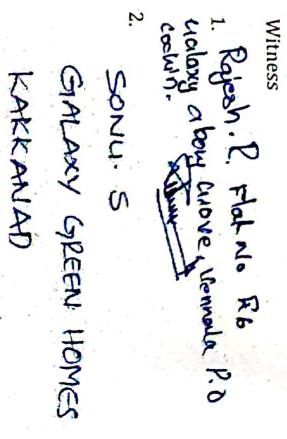 Witness
1. Rajesh. R. Flat No F6
Galaxy a bow cuove, Vennala P.O
cochin.
2.
SONU. S
GALAXY GREEN HOMES
KAKKANAD